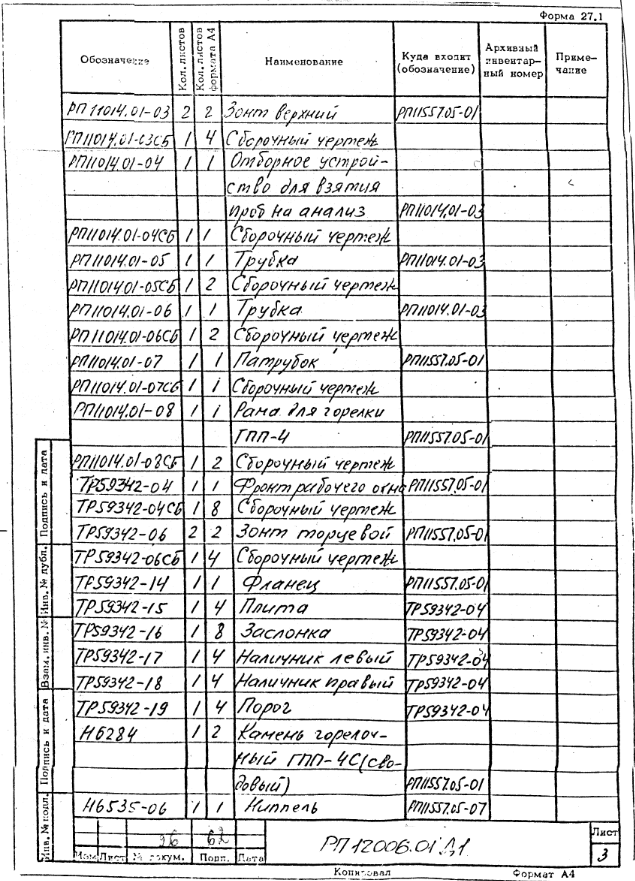 Форма 27.1
Обозначение Кол. листов Кол. листов формата А4 Наименование Куда входит (обозначение) Архивный инвентарный номер Примечание
РП11014.01-03 2 2 Зонт верхний РП11557.05-01
РП11014.01-03СБ 1 4 Сборочный чертеж
РП11014.01-04 1 1 Отборное устрой-
ство для взятия
проб на анализ РП11014.01-03
РП11014.01-04СБ 1 1 Сборочный чертеж
РП11014.01-05 1 1 Трубка РП11014.01-03
РП11014.01-05СБ 1 2 Сборочный чертеж
РП11014.01-06 1 1 Трубка РП11014.01-03
РП11014.01-06СБ 1 2 Сборочный чертеж
РП11014.01-07 1 1 Патрубок РП11557.05-01
РП11014.01-07СБ 1 1 Сборочный чертеж
РП11014.01-08 1 1 Рама для горелки
ГПП-4 РП11557.05-01
РП11014.01-08СБ 1 2 Сборочный чертеж
ТР59342-04 1 1 Фронт рабочего окна РП11557.05-01
ТР59342-04СБ 1 8 Сборочный чертеж
ТР59342-06 2 2 Зонт торцевой РП11557.05-01
ТР59342-06СБ 1 4 Сборочный чертеж
ТР59342-14 1 1 Фланец РП11557.05-01
ТР59342-15 1 4 Плита ТР59342-04
ТР59342-16 1 8 Заслонка ТР59342-04
ТР59342-17 1 4 Наличник левый ТР59342-04
ТР59342-18 1 4 Наличник правый ТР59342-04
ТР59342-19 1 4 Порог ТР59342-04
Н6284 1 2 Камень горелоч-
ный ГПП-4С(сво-
довый) РП11557.05-01
Н6535-06 1 1 Ниппель РП11557.05-07
Подпись и дата
Инв. № дубл.
Взам. инв. №
Подпись и дата
Инв. № подл.
96 62
Изм Лист № докум. Подп. Дата
РП12006.01 Д1
Лист
3
Копировал Формат А4